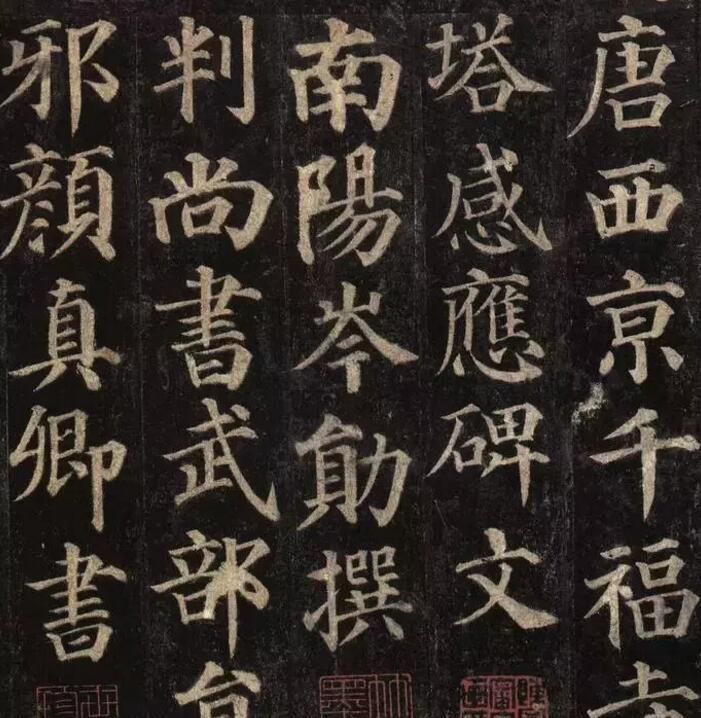 唐西京千福寺
塔感應碑文
南陽岑勛撰
判尚書武部員
邪顏真卿書